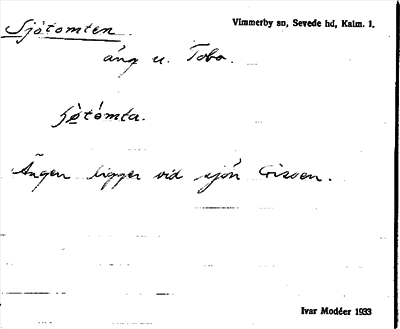 Sjötomten
Vimmerby sn, Sevede hd, Kalm. 1.
äng u. Tobo.
Ängen ligger vid sjön
Ivar Modéer 1933